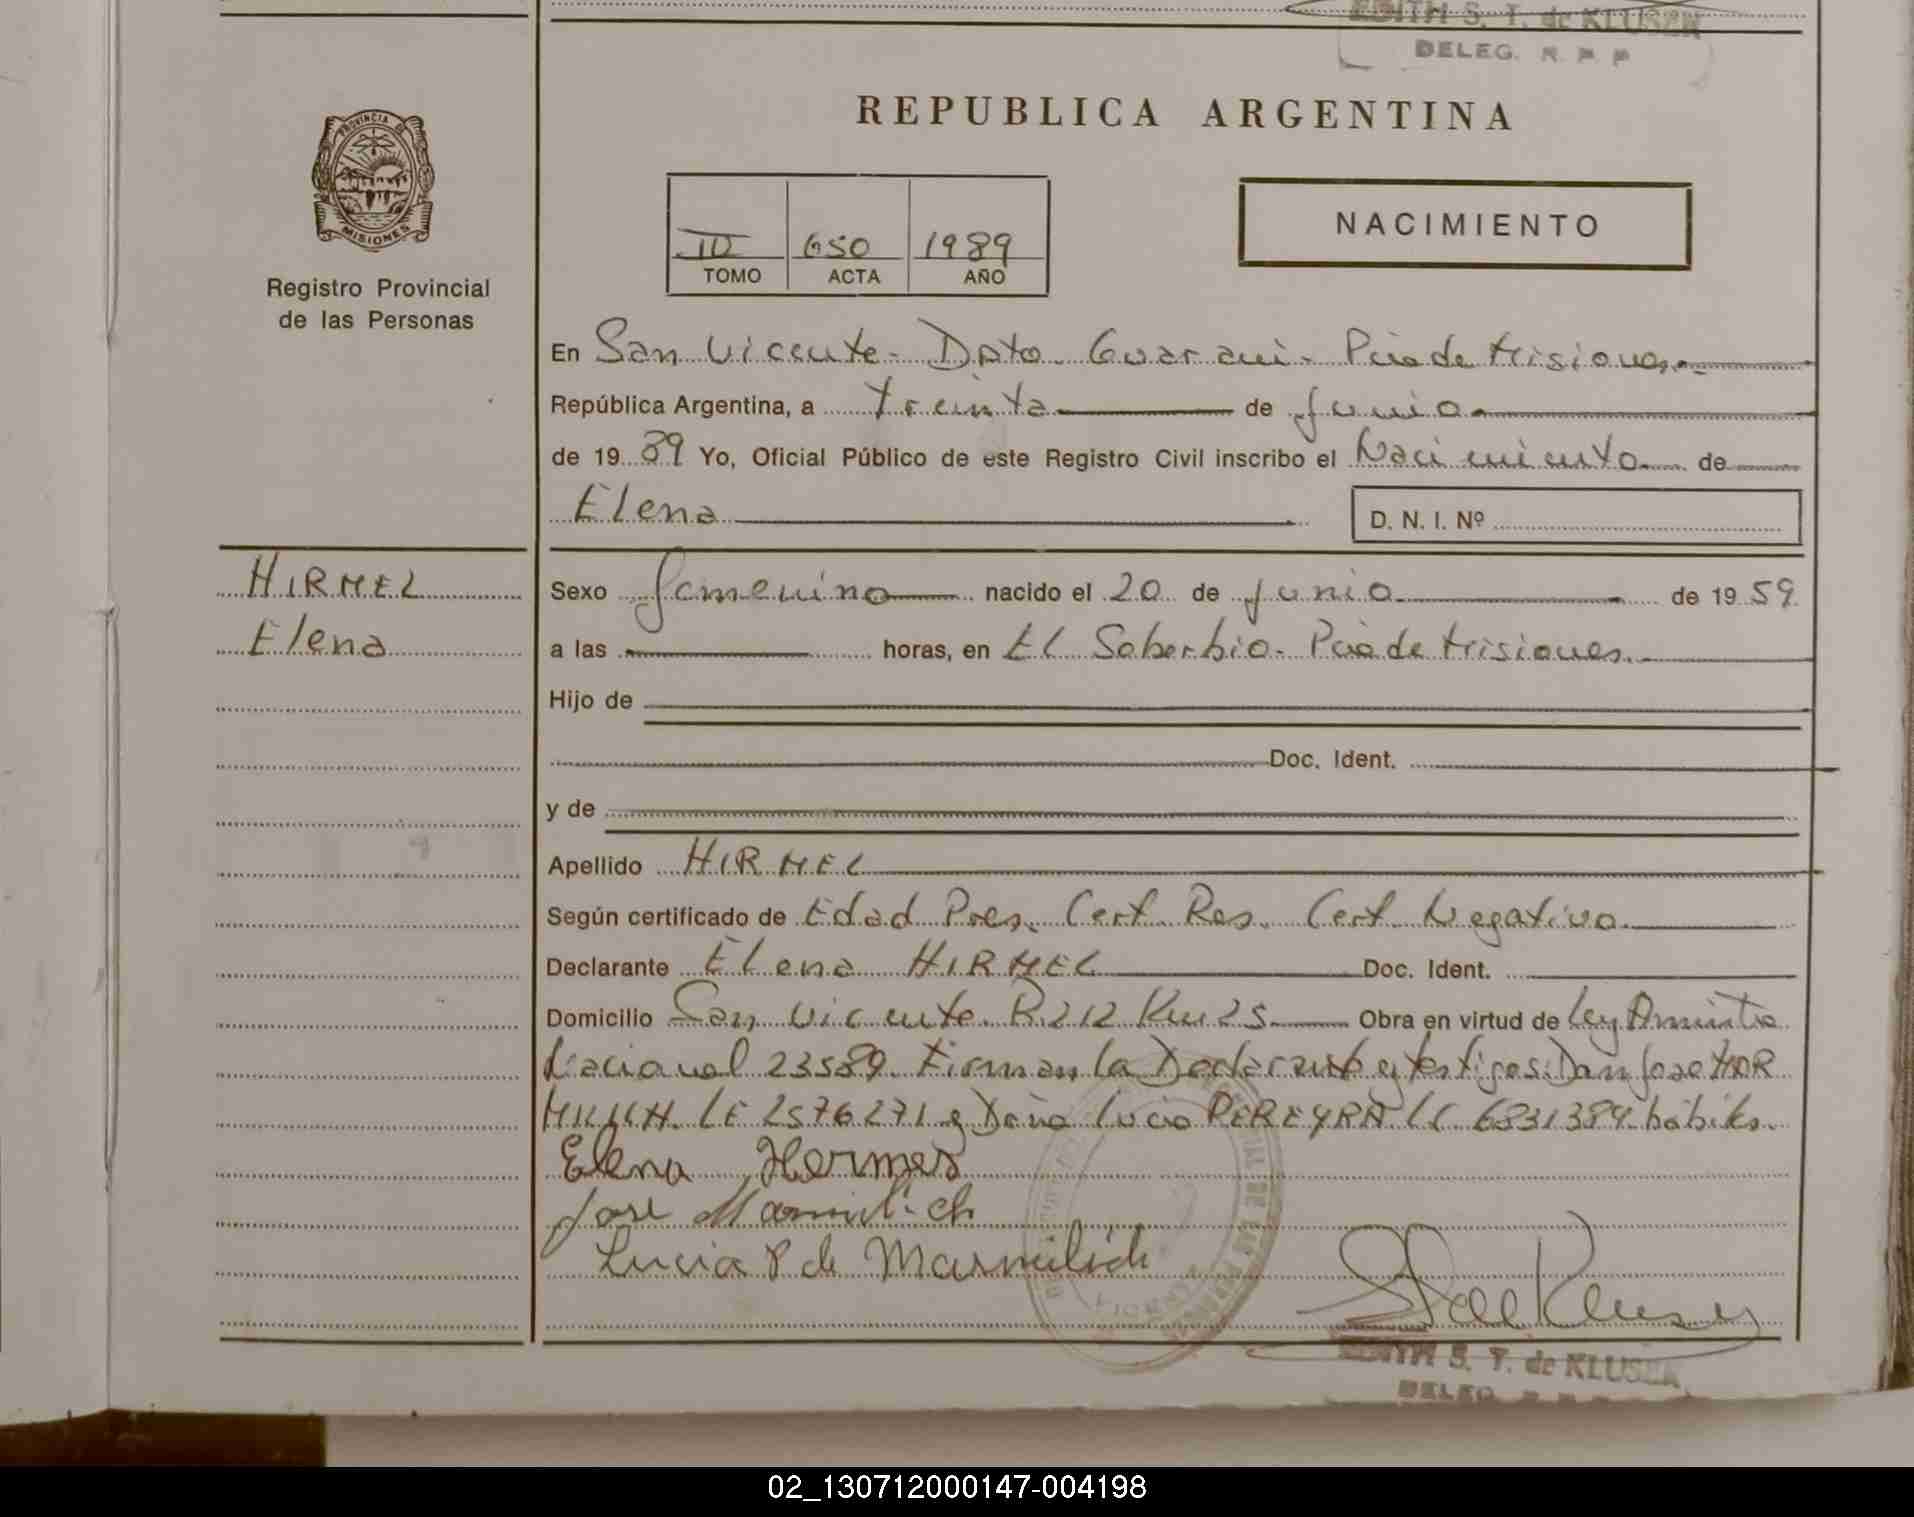 EDITH S. T. de KLUSEN
DELEG. R. P. P
REPUBLICA ARGENTINA
PROVINCIA DE
MISIONES
Registro Provincial
de las Personas
III 650 1989
TOMO ACTA AÑO
NACIMIENTO
En San Vicente - Dpto. Guarani - Pcia de Misiones.-
República Argentina, a Treinta de Junio
de 1989 Yo, Oficial Público de este Registro Civil inscribo el Nacimiento de
Elena D. N. I. Nº
HIRMEL
Elena
Sexo femenino nacido el 20 de junio de 1959
a las horas, en El Soberbio - Pcia de Misiones.
Hijo de
Doc. Ident.
y de
Apellido HIRMEL
Según certificado de Edad Pres. Cert. Res. Cert Negativo.
Declarante Elena HIRMEL Doc. Ident.
Domicilio San Vicente R 212 Km 25 Obra en virtud de Ley Amnistia
Nacional 23589. Firman la Declarante y testigos: Dn Jose MAR
MILICH. LE 2576271 y Doña Lucia PEREYRA LC 6831384. hábiles.
Elena Hermes
Jose Marmilich
Lucia P de Marmilich
EDITH S. T. de KLUSEN
DELEG. R. P. P
02_130712000147-004198